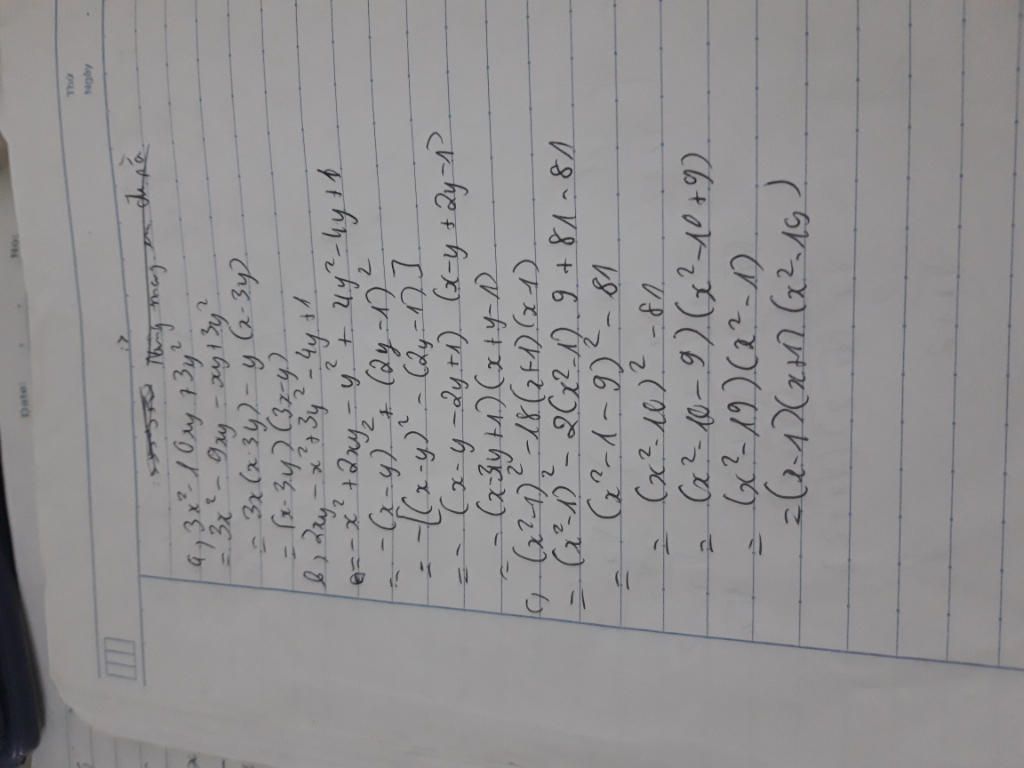 Thứ
Ngày
No:
Date:
a, 3x² - 10xy + 3y²
= 3x² - 9xy - xy + 3y²
= 3x(x - 3y) - y(x - 3y)
= (x - 3y)(3x - y)
b, 2xy - x² + 3y² - 4y + 1
= - x² + 2xy - y² + 4y² - 4y + 1
= - (x - y)² + (2y - 1)²
= - [(x - y)² - (2y - 1)²]
= - (x - y - 2y + 1) (x - y + 2y - 1)
= - (x - 3y + 1)(x + y - 1)
c, (x² - 1)² - 18(x + 1)(x - 1)
= (x² - 1)² - 2(x² - 1) 9 + 81 - 81
= (x² - 1 - 9)² - 81
= (x² - 10)² - 81
= (x² - 10 - 9)(x² - 10 + 9)
= (x² - 19)(x² - 1)
= (x - 1)(x + 1)(x² - 19)